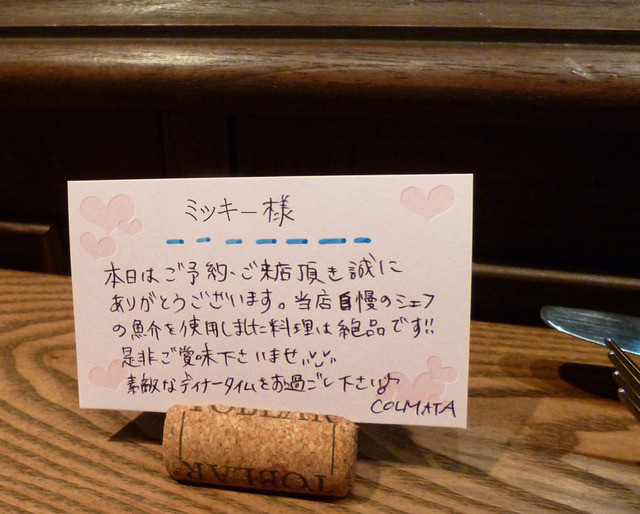 ミッキー様
本日はご予約、ご来店頂き誠に
ありがとうございます。当店自慢のシェフ
の魚介を使用しました料理は絶品です!!
是非ご賞味下さいませ
素敵なディナータイムをお過ごし下さい♪
COLMATA
TOBLAR
TOBLAR